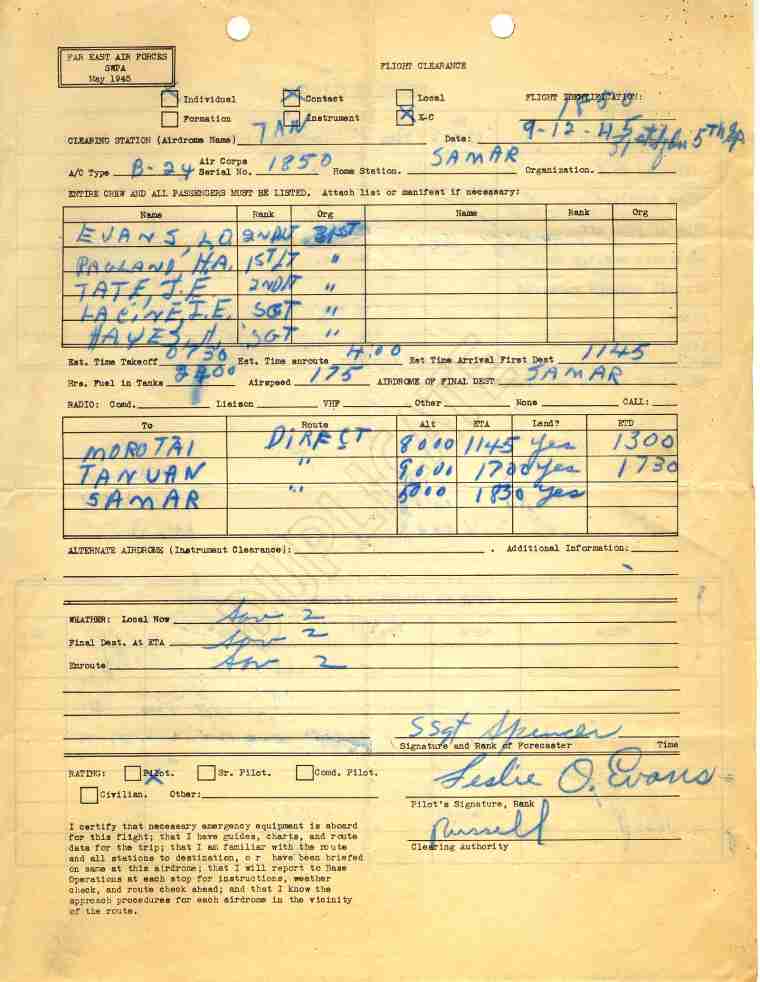 FAR EAST AIR FORCES
SWPA
May 1945
FLIGHT CLEARANCE
Individual Contact Local FLIGHT IDENTIFICATION: 1850
Formation Instrument X-C
CLEARING STATION (Airdrome Name) TAN Date: 9-12-45
A/C Type B-24 Air Corps Serial No. 1850 Home Station. SAMAR Organization.
ENTIRE CREW AND ALL PASSENGERS MUST BE LISTED. Attach list or manifest if necessary:
Name Rank Org Name Rank Org
EVANS, L.O. 2NDLT 31ST
RAGLAND, H.A. 1ST LT "
TATE, J.E. 2NDLT "
LACINE, I.E. SGT "
HAYES, H. SGT "
Est. Time Takeoff 0730 Est. Time enroute 4:00 Est Time Arrival First Dest 1145
Hrs. Fuel in Tanks Airspeed 175 AIRDROME OF FINAL DEST SAMAR
RADIO: Comd. Liaison VHF Other None CALL:
To Route Alt ETA Land? ETD
MOROTAI DIRECT 8000 1145 Yes 1300
TANUAN " 9000 1700 Yes 1730
SAMAR " 5000 1830 Yes
ALTERNATE AIRDROME (Instrument Clearance): . Additional Information:
WEATHER: Local Now 2
Final Dest. At ETA 2
Enroute 2
SSgt Spencer
Signature and Rank of Forecaster Time
RATING: Pilot. Sr. Pilot. Comd. Pilot.
Leslie O. Evans
Civilian. Other:
Pilot's Signature, Rank
Russell
Clearing Authority
I certify that necessary emergency equipment is aboard
for this flight; that I have guides, charts, and route
data for the trip; that I am familiar with the route
and all stations to destination, o r have been briefed
on same at this airdrome; that I will report to Base
Operations at each stop for instructions, weather
check, and route check ahead; and that I know the
approach procedures for each airdrome in the vicinity
of the route.
DUPLICATE